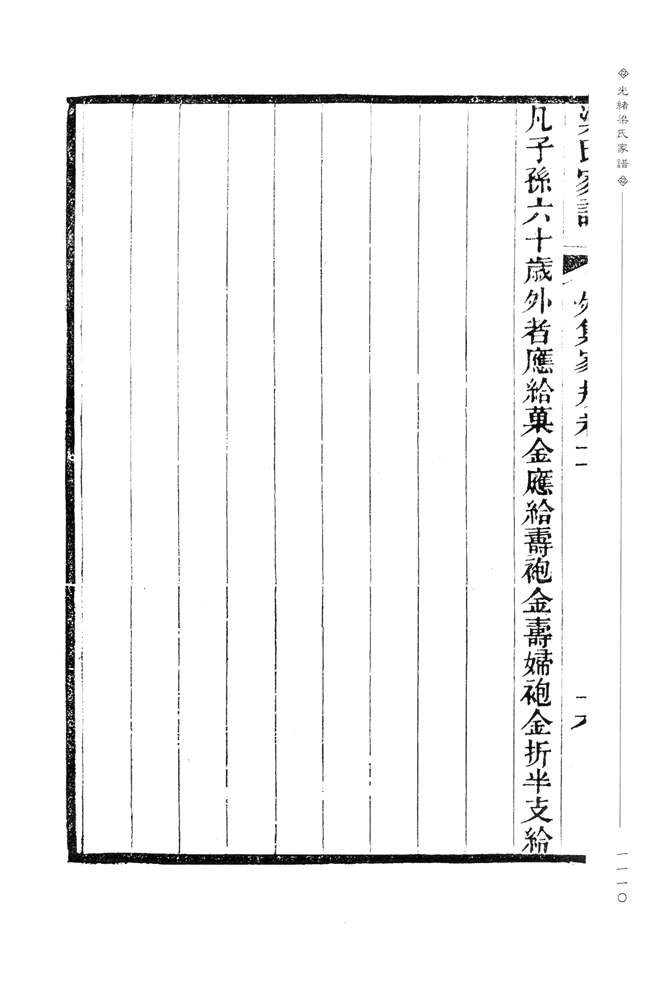 光緒梁氏家譜
一一一〇
梁氏家譜 外集家規卷二 十六
凡子孫六十歲外者應給菓金應給壽袍金壽婦袍金折半支給